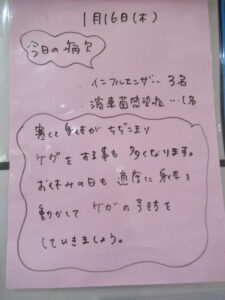 1月16日(木)
今日の病欠
・インフルエンザ…3名
・溶連菌感染症…1名
寒くて身体がちぢこまり
ケガをする事も多くなります。
お休みの日も適度に身体を
動かしてケガの予防を
していきましょう。